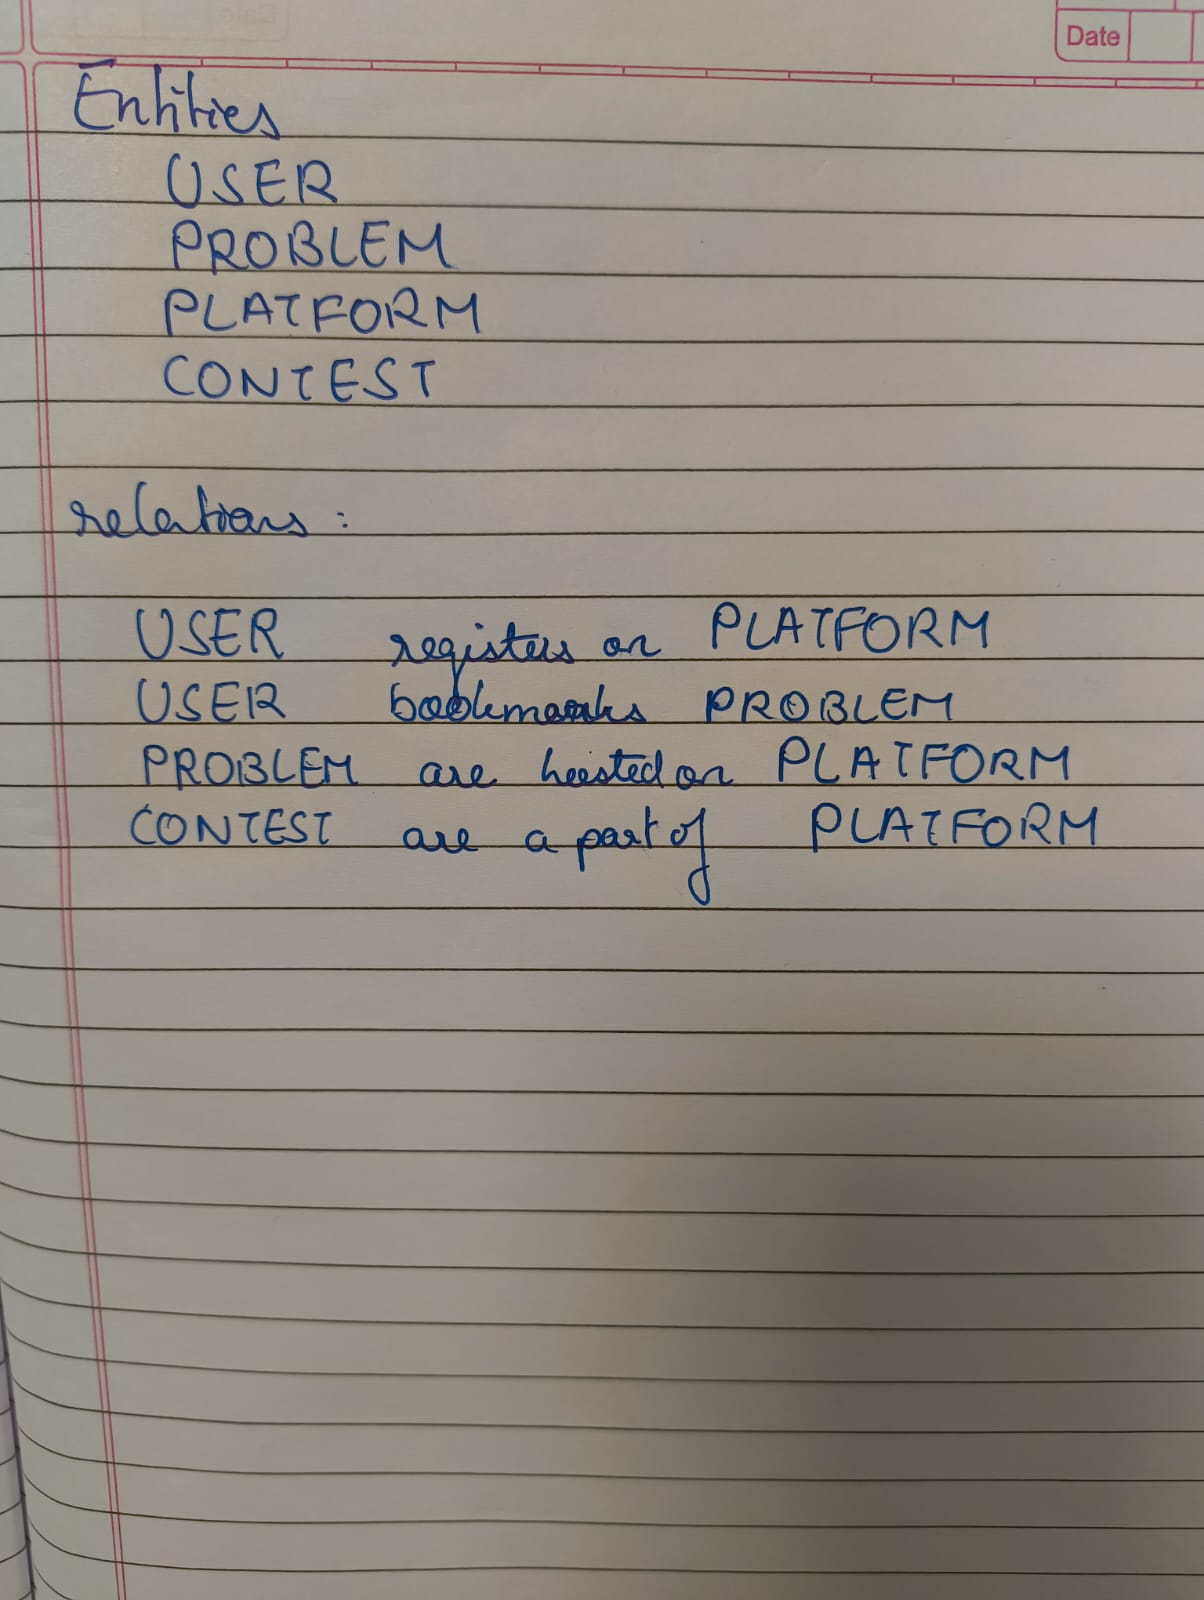 Date
Entities
USER
PROBLEM
PLATFORM
CONTEST
relations :
USER registers on PLATFORM
USER bookmarks PROBLEM
PROBLEM are hosted on PLATFORM
CONTEST are a part of PLATFORM